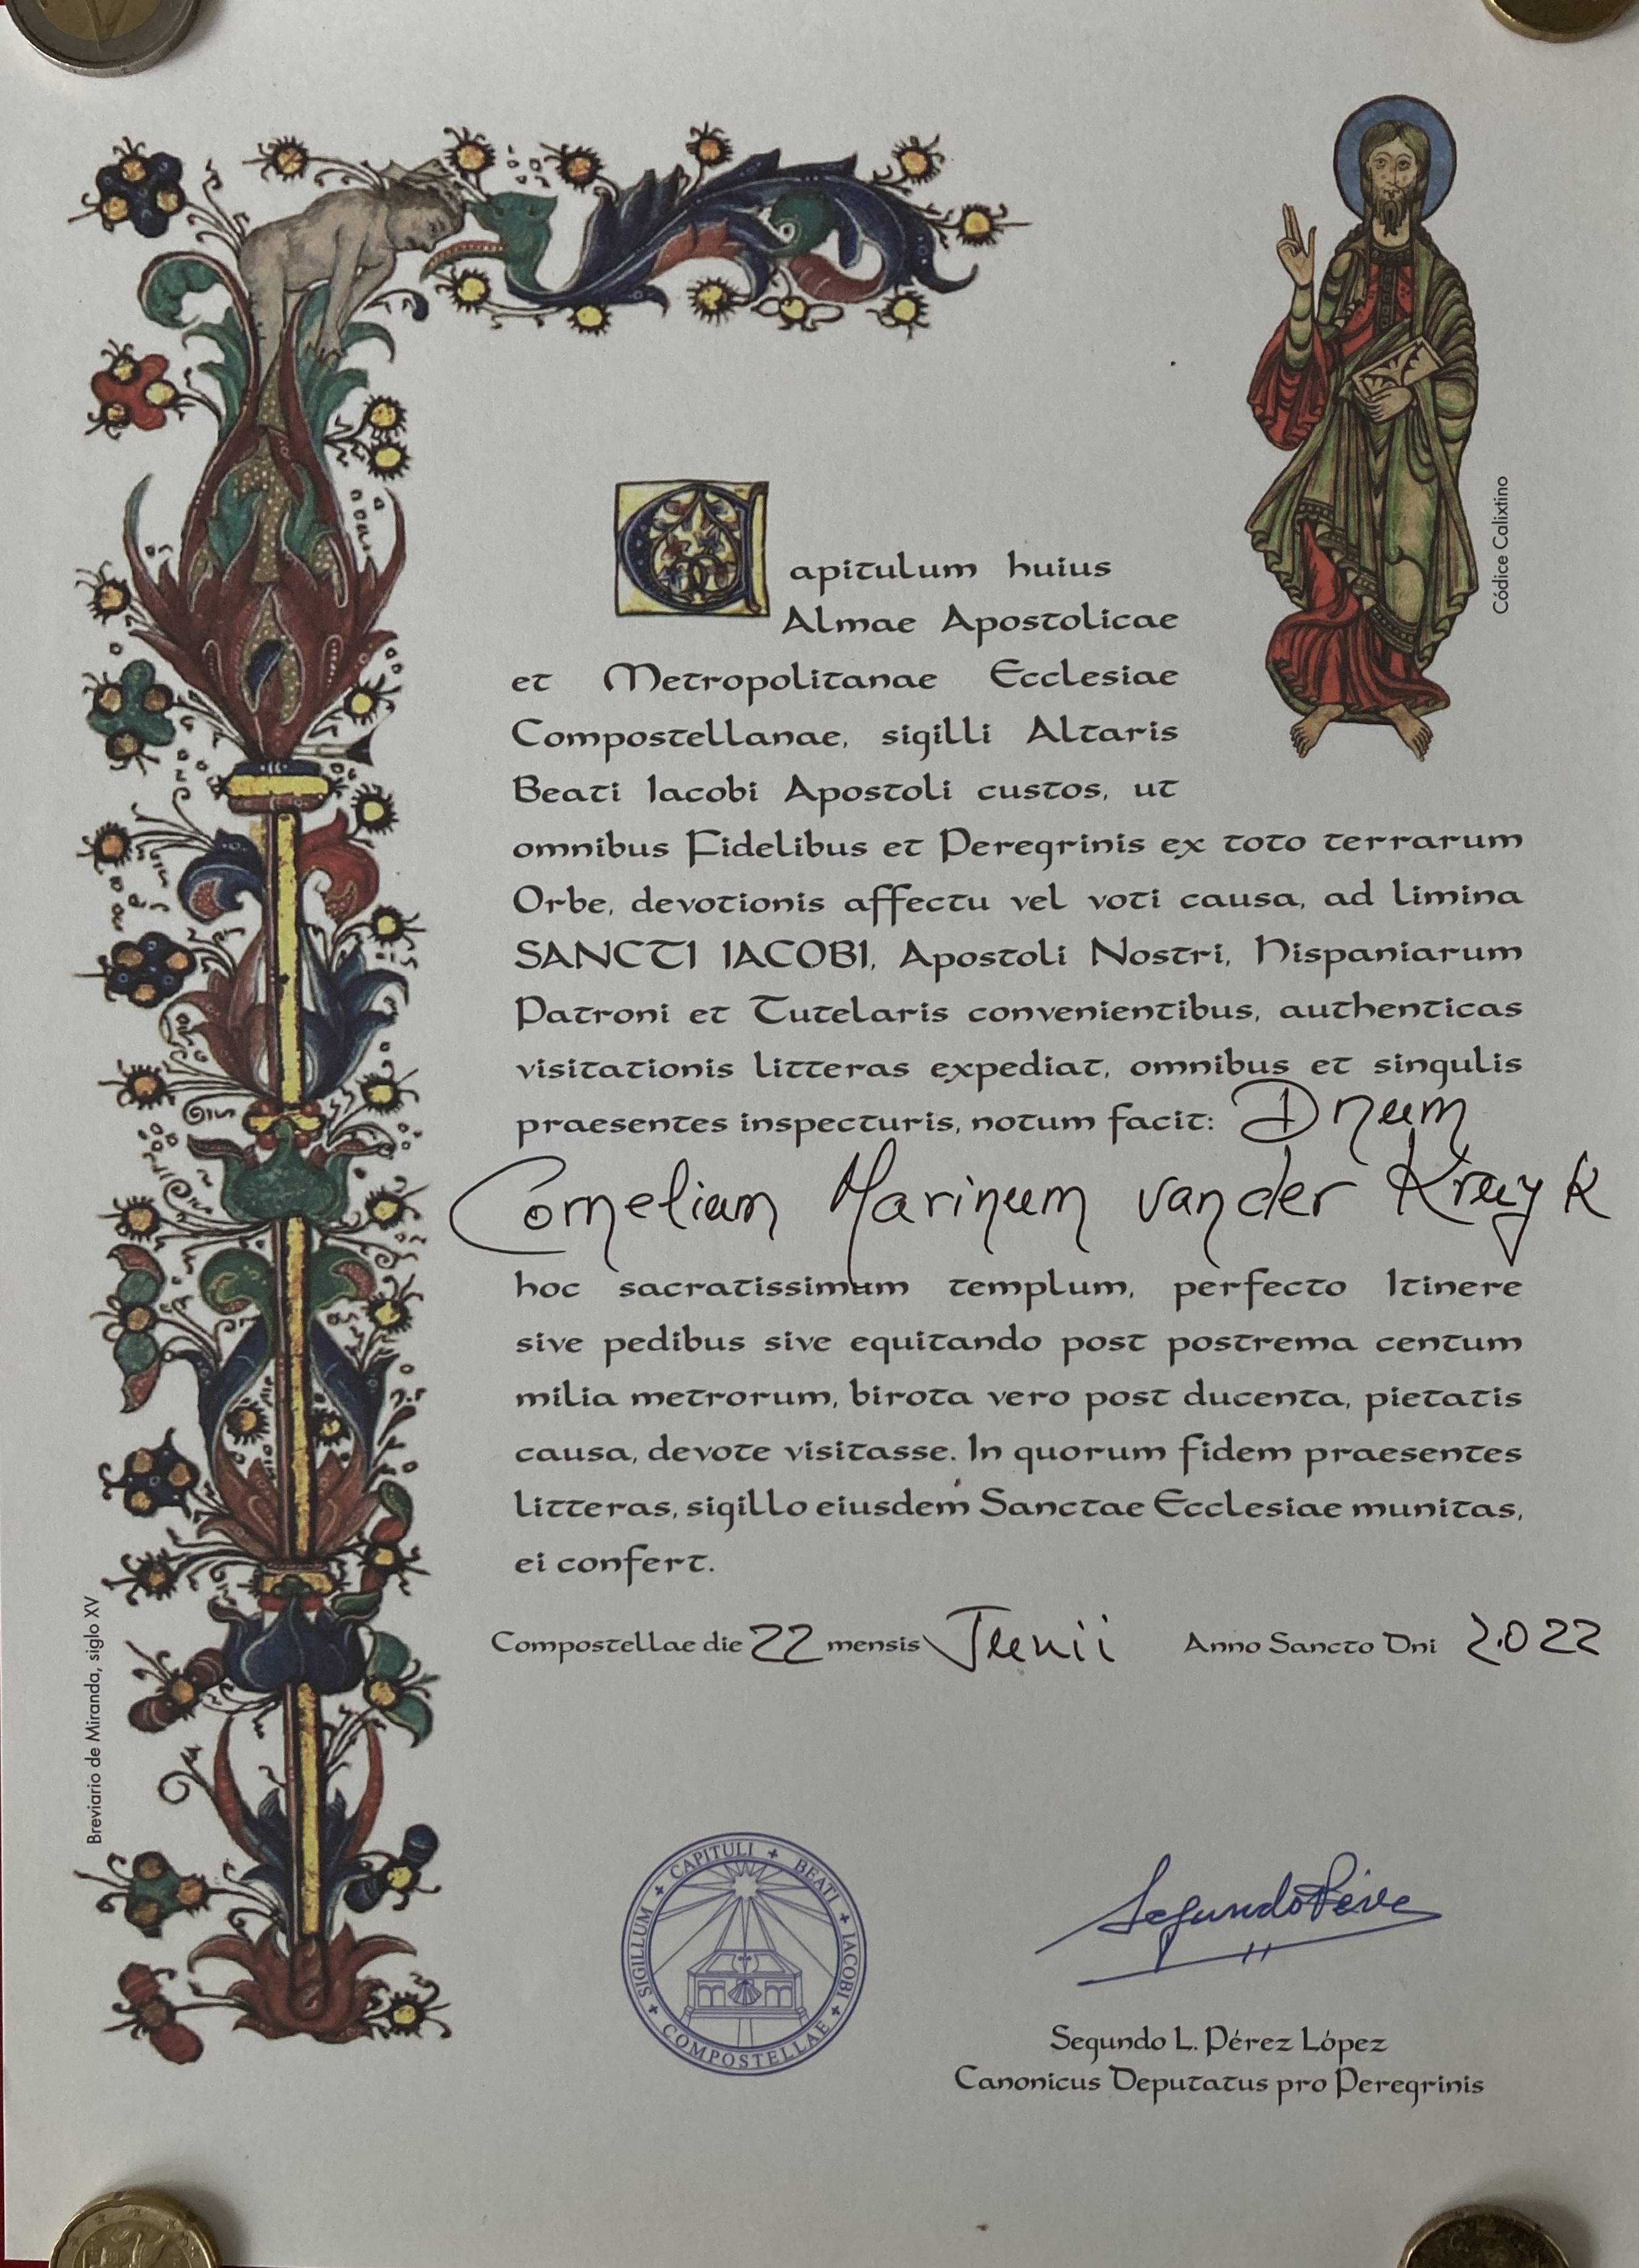 Capitulum huius
Almae Apostolicae
et Metropolitanae Ecclesiae
Compostellanae, sigilli Altaris
Beati Iacobi Apostoli custos, ut
omnibus Fidelibus et Peregrinis ex toto terrarum
Orbe, devotionis affectu vel voti causa, ad limina
SANCTI IACOBI, Apostoli Nostri, Hispaniarum
Patroni et Tutelaris convenientibus, authenticas
visitationis litteras expediat, omnibus et singulis
praesentes inspecturis, notum facit: Dnum
Cornelium Marinum van der Kruyk
hoc sacratissimum templum, perfecto Itinere
sive pedibus sive equitando post postrema centum
milia metrorum, birota vero post ducenta, pietatis
causa, devote visitasse. In quorum fidem praesentes
litteras, sigillo eiusdem Sanctae Ecclesiae munitas,
ei confert.
Compostellae die 22 mensis Junii Anno Sancto Dni 2.022
SIGILLUM + CAPITULI + BEATI + IACOBI + COMPOSTELLAE +
Segundo Pérez
Segundo L. Pérez López
Canonicus Deputatus pro Peregrinis
Códice Calixtino
Breviario de Miranda, siglo XV